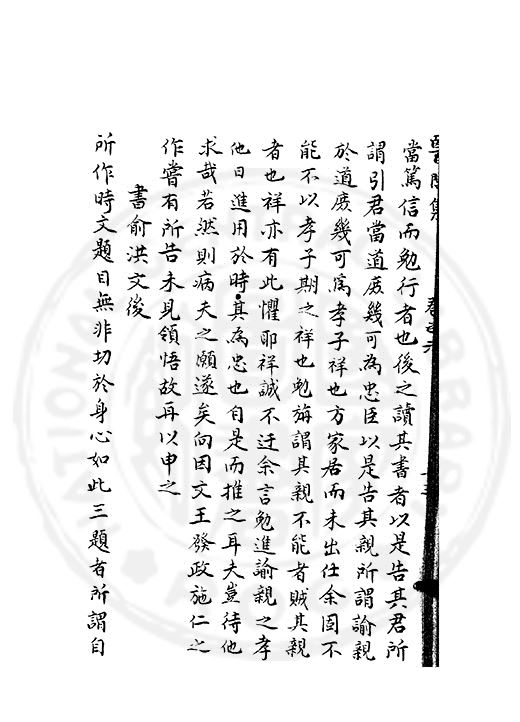 當篤信而勉行者也後之讀其書者以是告其君所
謂引君當道庻幾可為忠臣以是告其親所謂諭親
於道庻幾可為孝子祥也方家居而未出仕余固不
能不以孝子期之祥也勉旃謂其親不能者賊其親
者也祥亦有此懼耶祥誠不迂余言勉進諭親之孝
他日進用於時其為忠也自是而推之耳夫豈待他
求哉若然則病夫之願遂矣向因文王發政施仁之
作嘗有所告未見領悟故再以申之
書俞洪文後
所作時文題目無非切於身心如此三題者所謂自